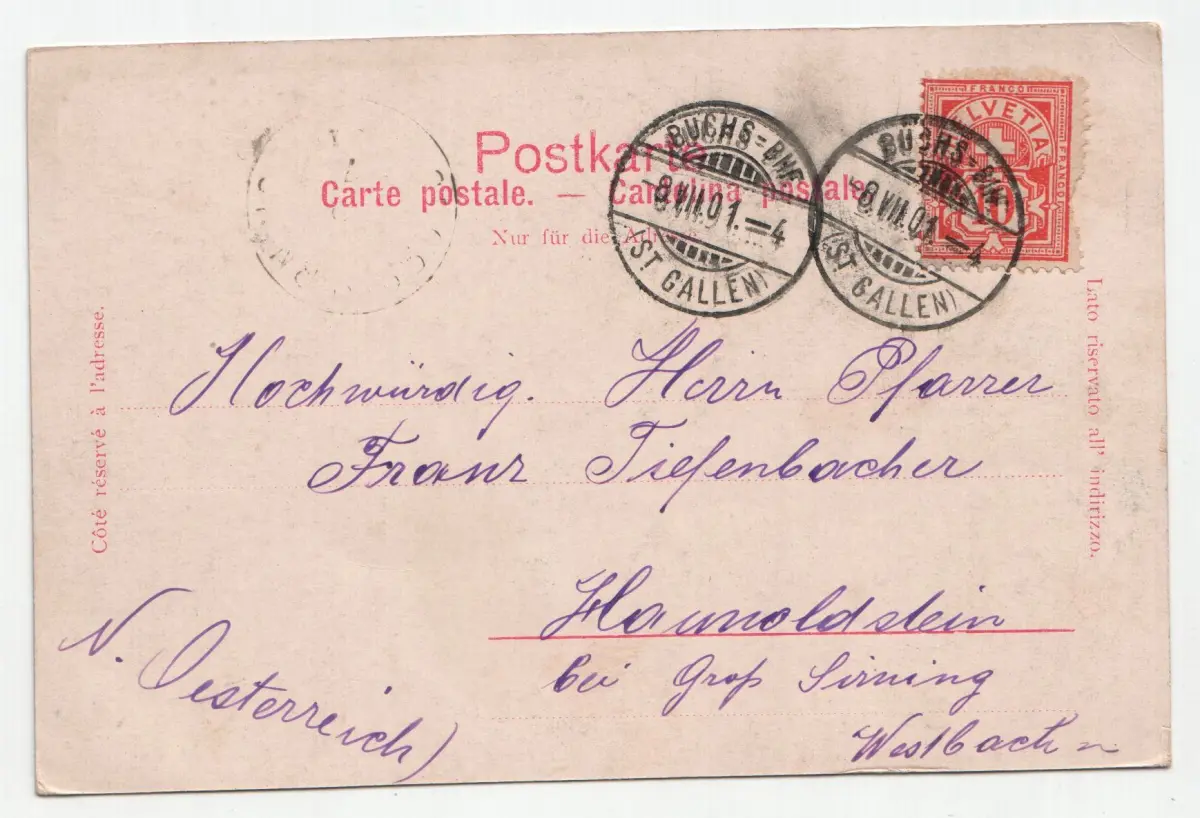 Postkarte
Carte postale. — Cartolina postale.
Nur für die Adresse
BUCHS=BHF
8.VII.01.—4
(ST GALLEN)
BUCHS=BHF
-8.VII.01.—4
(ST GALLEN)
FRANCO
HELVETIA
FRANCO
10
Côté réservé à l'adresse.
Lato riservato all' indirizzo.
Hochwürdig. Herrn Pfarrer
Franz Tiefenbacher
Haunoldstein
bei Groß Sirning
Westbach
N. Oesterreich)